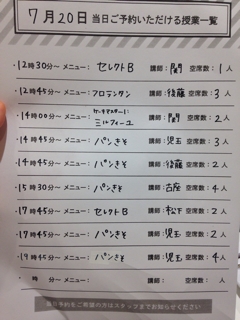 7月20日 当日ご予約いただける授業一覧
・12時30分～ メニュー: セレクトB 講師: 関 空席数: 1人
・12時45分～ メニュー: フロランタン 講師: 後藤 空席数: 3人
・14時00分～ メニュー: ケーキマスターⅠ ミルフィーユ 講師: 関 空席数: 2人
・14時45分～ メニュー: パンきそ 講師: 児玉 空席数: 3人
・14時45分～ メニュー: パンきそ 講師: 後藤 空席数: 2人
・15時30分～ メニュー: パンきそ 講師: 古座 空席数: 4人
・17時45分～ メニュー: セレクトB 講師: 松下 空席数: 2人
・17時45分～ メニュー: パンきそ 講師: 児玉 空席数: 2人
・19時45分～ メニュー: パンきそ 講師: 児玉 空席数: 4人
・ 時 分～ メニュー: 講師: 空席数: 人
当日予約をご希望の方はスタッフまでお知らせください